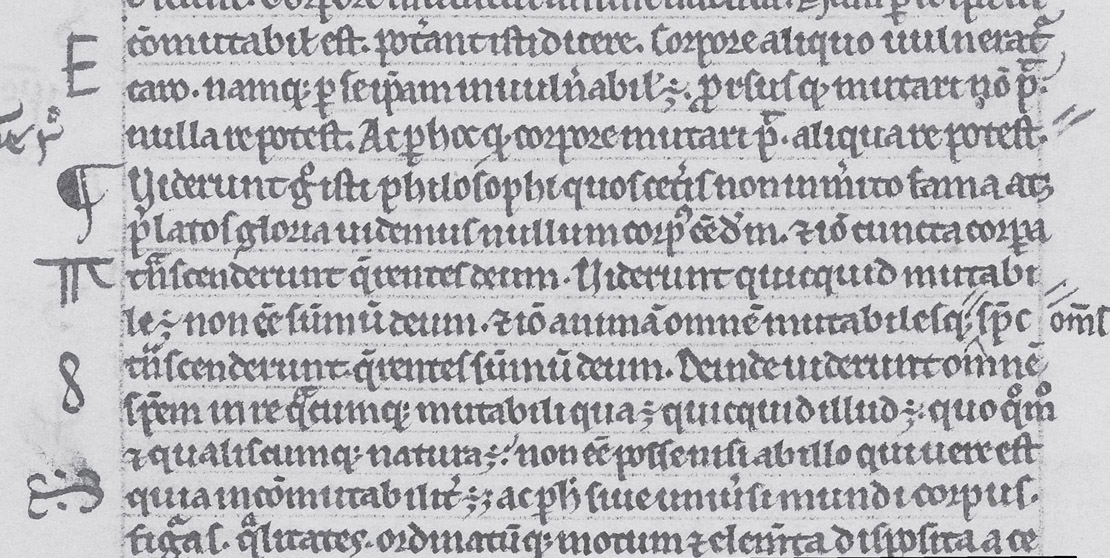 cōmutabił est. pot̄ant isti dicere. Corpore aliquo uulnerat̄
caro. namq; ꝑ seip̄am inuuln̄abił ÷. ꝓrsus q; mutari nō p̄.
nulla re potest. Ac ꝑ hoc q; corpore mutari p̄. aliqua re potest.
Uiderunt gͦ isti philosophi quos cet̄is non inm̄ito fama atq;
p̄latos gloria uidemus nullum corpꝰ ēē dm̄. ⁊ iō cuncta corꝑa
tn̄scenderunt q̄rentes deum. Uiderunt quicquid mutabi
le ÷ non ēē sūmū deum. ⁊ iō animā omnē mutabilesq; sp̄c oms̄
tn̄scenderunt q̄rentes sūmū deum. Deinde uiderunt omnē
sp̄em in re q̄cumq; mutabili qua ÷ quicquid illud ÷. quoq̊ m̊
⁊ qualiscumq; natura ÷. non ēē posse nisi ab illo qui uere est
quia incōmutabilit̄ ÷. ac ꝑ h̄ siue uniu̇si mundi corpus.
figᵃs. q̄litates. ordinatūq; motum ⁊ elem̄ta disposita a ce
E
¶